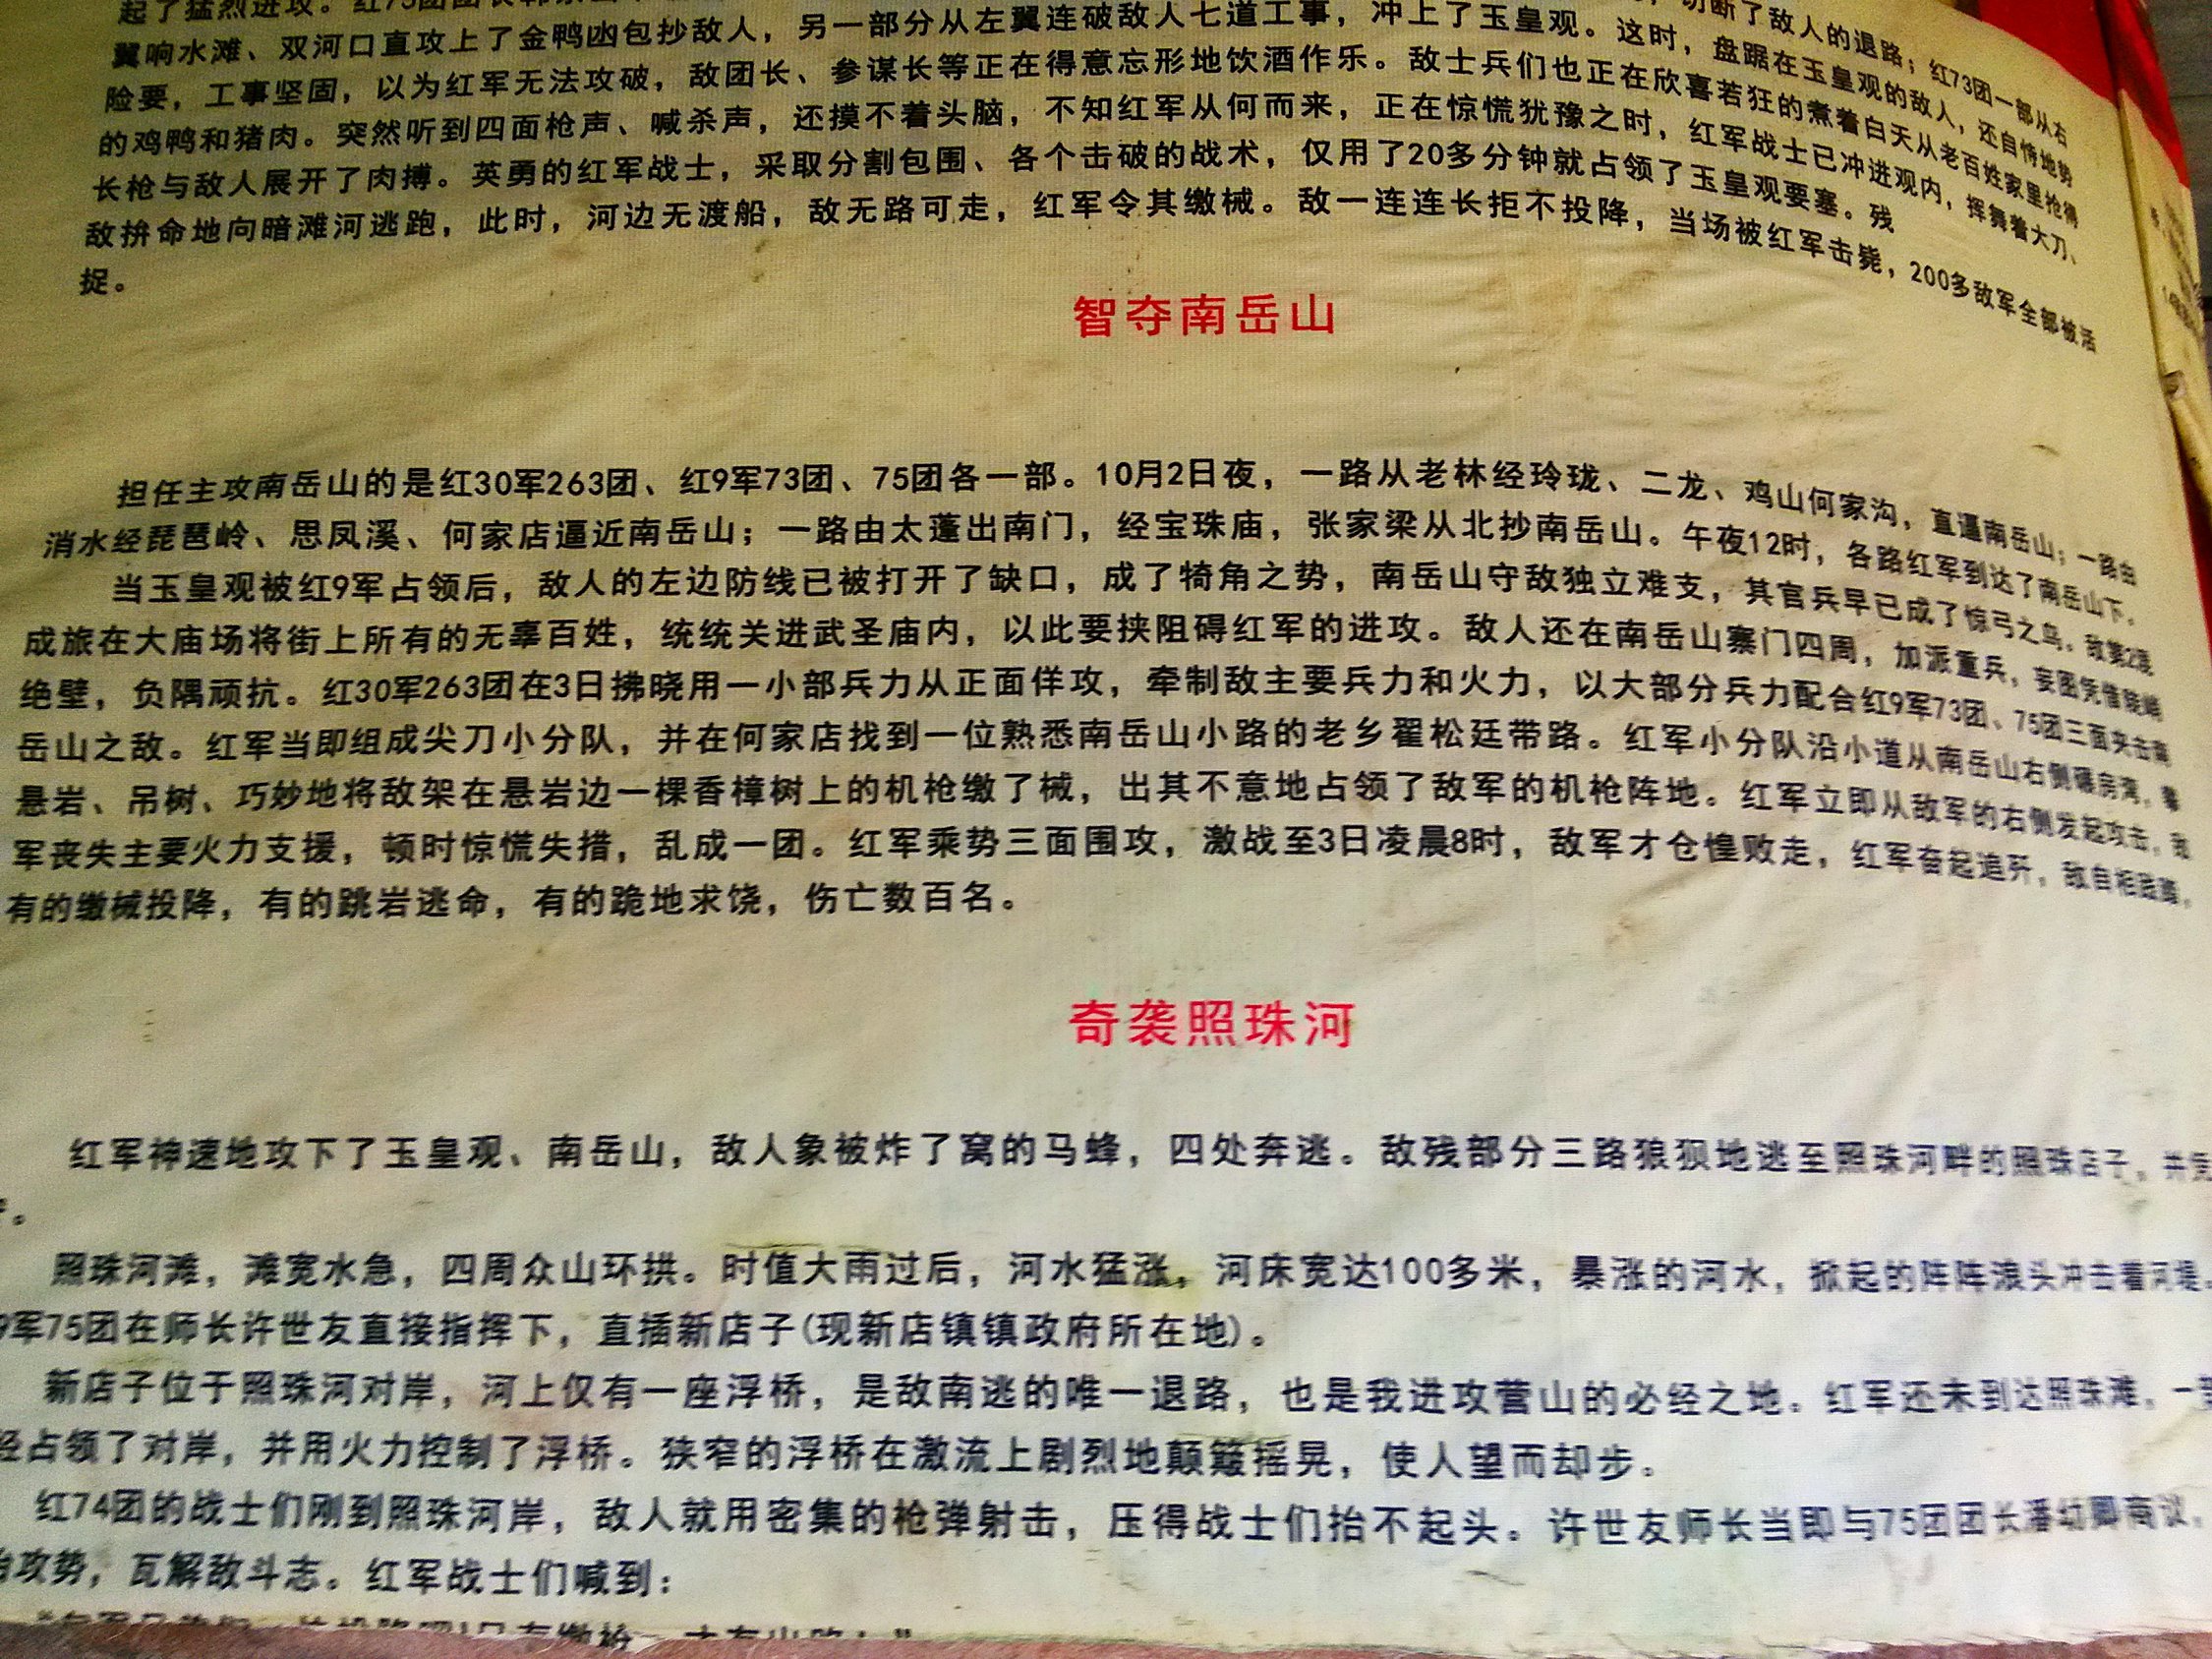 起了猛烈进攻。红75团团长
切断了敌人的退路；红73团一部从右
翼响水滩、双河口直攻上了金鸭凼包抄敌人，另一部分从左翼连破敌人七道工事，冲上了玉皇观。这时，盘踞在玉皇观的敌人，还自恃地势
险要，工事坚固，以为红军无法攻破，敌团长、参谋长等正在得意忘形地饮酒作乐。敌士兵们也正在欣喜若狂的煮着白天从老百姓家里抢得
的鸡鸭和猪肉。突然听到四面枪声、喊杀声，还摸不着头脑，不知红军从何而来，正在惊慌犹豫之时，红军战士已冲进观内，挥舞着大刀、
长枪与敌人展开了肉搏。英勇的红军战士，采取分割包围、各个击破的战术，仅用了20多分钟就占领了玉皇观要塞。残
敌拚命地向暗滩河逃跑，此时，河边无渡船，敌无路可走，红军令其缴械。敌一连连长拒不投降，当场被红军击毙，200多敌军全部被活
捉。
智夺南岳山
担任主攻南岳山的是红30军263团、红9军73团、75团各一部。10月2日夜，一路从老林经玲珑、二龙、鸡山何家沟，直逼南岳山；一路由
消水经琵琶岭、思凤溪、何家店逼近南岳山；一路由太蓬出南门，经宝珠庙，张家梁从北抄南岳山。午夜12时，各路红军到达了南岳山下。
当玉皇观被红9军占领后，敌人的左边防线已被打开了缺口，成了犄角之势，南岳山守敌独立难支，其官兵早已成了惊弓之鸟。敌第2混
成旅在大庙场将街上所有的无辜百姓，统统关进武圣庙内，以此要挟阻碍红军的进攻。敌人还在南岳山寨门四周，加派重兵，妄图凭借陡峭
绝壁，负隅顽抗。红30军263团在3日拂晓用一小部兵力从正面佯攻，牵制敌主要兵力和火力，以大部分兵力配合红9军73团、75团三面夹击南
岳山之敌。红军当即组成尖刀小分队，并在何家店找到一位熟悉南岳山小路的老乡翟松廷带路。红军小分队沿小道从南岳山右侧碾房湾，攀
悬岩、吊树、巧妙地将敌架在悬岩边一棵香樟树上的机枪缴了械，出其不意地占领了敌军的机枪阵地。红军立即从敌军的右侧发起攻击，敌
军丧失主要火力支援，顿时惊慌失措，乱成一团。红军乘势三面围攻，激战至3日凌晨8时，敌军才仓惶败走，红军奋起追歼，敌自相践踏，
有的缴械投降，有的跳岩逃命，有的跪地求饶，伤亡数百名。
奇袭照珠河
红军神速地攻下了玉皇观、南岳山，敌人象被炸了窝的马蜂，四处奔逃。敌残部分三路狼狈地逃至照珠河畔的照珠店子，并凭
。
照珠河滩，滩宽水急，四周众山环拱。时值大雨过后，河水猛涨，河床宽达100多米，暴涨的河水，掀起的阵阵浪头冲击着河堤
9军75团在师长许世友直接指挥下，直插新店子(现新店镇镇政府所在地)。
新店子位于照珠河对岸，河上仅有一座浮桥，是敌南逃的唯一退路，也是我进攻营山的必经之地。红军还未到达照珠滩，一
经占领了对岸，并用火力控制了浮桥。狭窄的浮桥在激流上剧烈地颠簸摇晃，使人望而却步。
红74团的战士们刚到照珠河岸，敌人就用密集的枪弹射击，压得战士们抬不起头。许世友师长当即与75团团长潘幼卿商议，
治攻势，瓦解敌斗志。红军战士们喊到：